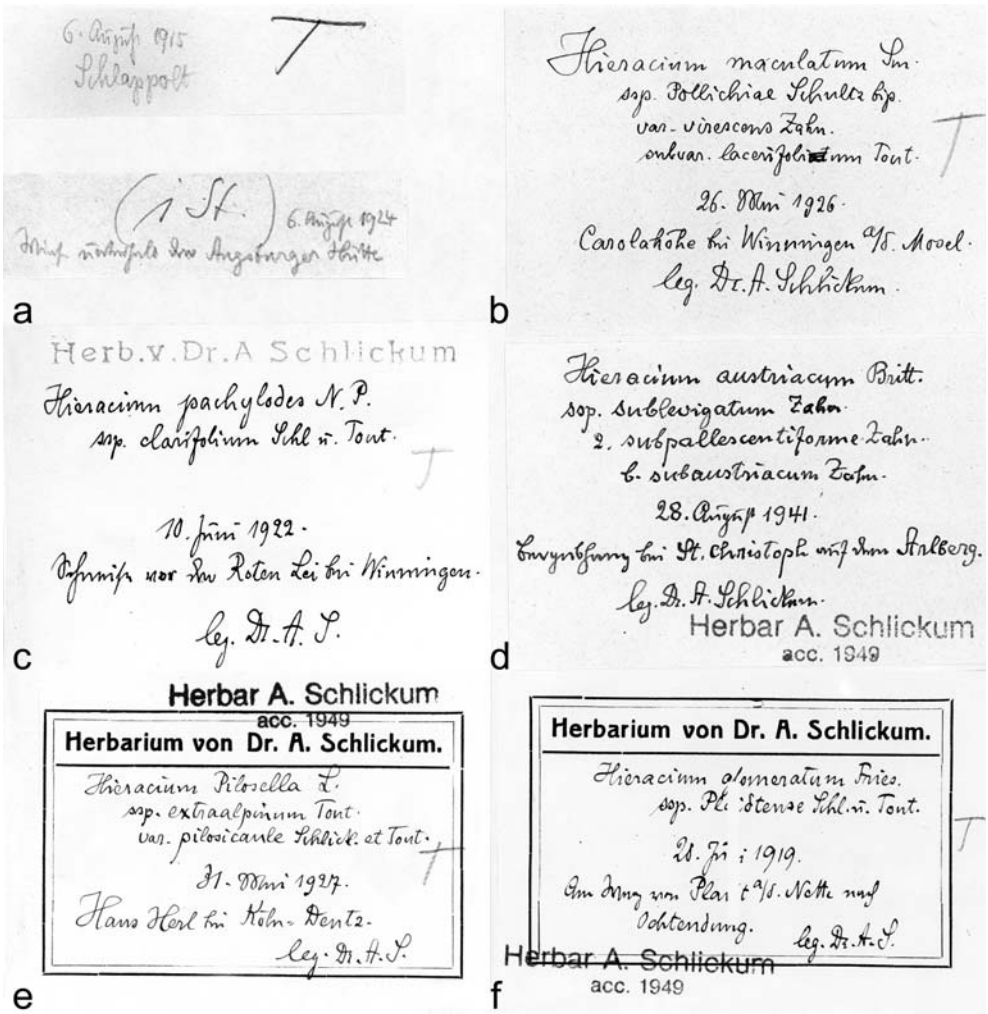 6. August 1915
Schlappolt
T
(1 St.)
6. August 1924
unterhalb der Augsburger Hütte
a
Hieracium maculatum Sm.
ssp. Pollichiae Schultz bip.
var. virescens Zahn.
subvar. lacerifolium Tout.
T
26. Mai 1926.
Carolahöhe bei Winningen a/d. Mosel.
leg. Dr. A. Schlickum.
b
Herb.v.Dr.A Schlickum
Hieracium pachylodes N. P.
ssp. clarifolium Schl u. Tout.
T
10. Juni 1922.
Schneise vor der Roten Lei bei Winningen.
leg. Dr. A. S.
c
Hieracium austriacum Britt.
ssp. sublevigatum Zahn.
2. subpallescentiforme Zahn.
b. subaustriacum Zahn.
28. August 1941.
bei St. Christoph auf dem Arlberg.
leg. Dr. A. Schlickum.
Herbar A. Schlickum
acc. 1949
d
Herbar A. Schlickum
acc. 1949
Herbarium von Dr. A. Schlickum.
Hieracium Pilosella L.
ssp. extraalpinum Tout.
var. pilosicaule Schlick. et Tout.
T
31. Mai 1927.
Haus Herl bei Köln-Deutz.
leg. Dr. A. S.
e
Herbarium von Dr. A. Schlickum.
Hieracium glomeratum Fries.
ssp. Pl idtense Schl. u. Tout.
T
28. Ju i 1919.
Am Weg von Plai t a/d. Nette nach
Ochtendung.
leg. Dr. A. S.
Herbar A. Schlickum
acc. 1949
f